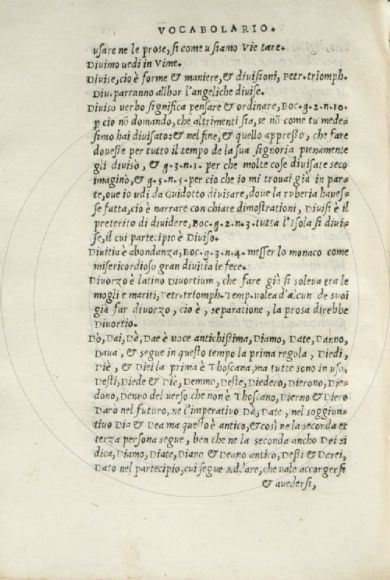 VOCABOLARIO.
usare ne le prose, si come usiamo Vie tare.
Divimo uedi in Vime.
Divise, cio è forme & maniere, & divisioni, Petr. triomph.
Div. parranno alhor l'angeliche divise.
Diviso uerbo significa pensare & ordinare, Boc. g. 2. n. 10.
p cio nō domando, che altrimenti sia, se nō come tu mede-
simo hai divisato: & nel fine, & quello appresso, che fare
dovesse per tutto il tempo de la sua signoria pienamente
gli divisò, & g. 3. n. 1. per che molte cose divisate seco
imaginò, & g. 5. n. 5. per cio che io mi trouai già in par-
te, oue io udi da Guidotto divisare, doue la ruberia haues-
se fatta, cio è narrare con chiare dimostrationi, Divisi è il
preterito di diuidere, Boc. g. 2. n. 3. tutta l'Isola si diui-
se, il cui partecipio è Diviso.
Divitia è abondanza, Boc. g. 3. n. 4. messer lo monaco come
misericordioso gran divitia le fece.
Divorzo è latino Divortium, che fare già si soleva tra le
mogli e mariti, Petr. triomph. Temp. volea d'alcun de suoi
già far divorzo, cio è, separatione, la prosa direbbe
Divortio.
Dò, Dai, Dè, Dae è uoce antichissima, Diamo, Date, Danno,
Daua, & segue in questo tempo la prima regola, Diedi,
Diè, & Diei la prima è Thoscana, ma tutte sono in uso,
Desti, Diede & Diè, Demmo, Deste, Diedero, Dierono, Die-
dono, Denno del uerso che non è Thoscano, Dierno & Diero
Darò nel futuro, ne l'imperativo Dà, Date, nel soggiun-
tivo Dia & Dea ma questo è antico, & così ne la seconda et
terza persona segue, ben che ne la seconda ancho Dei si
dica, Diamo, Diate, Diano & Deano antico, Dessi & Derei,
Dato nel partecipio, cui segue Ad'are, che uale accorgersi
& auedersi,